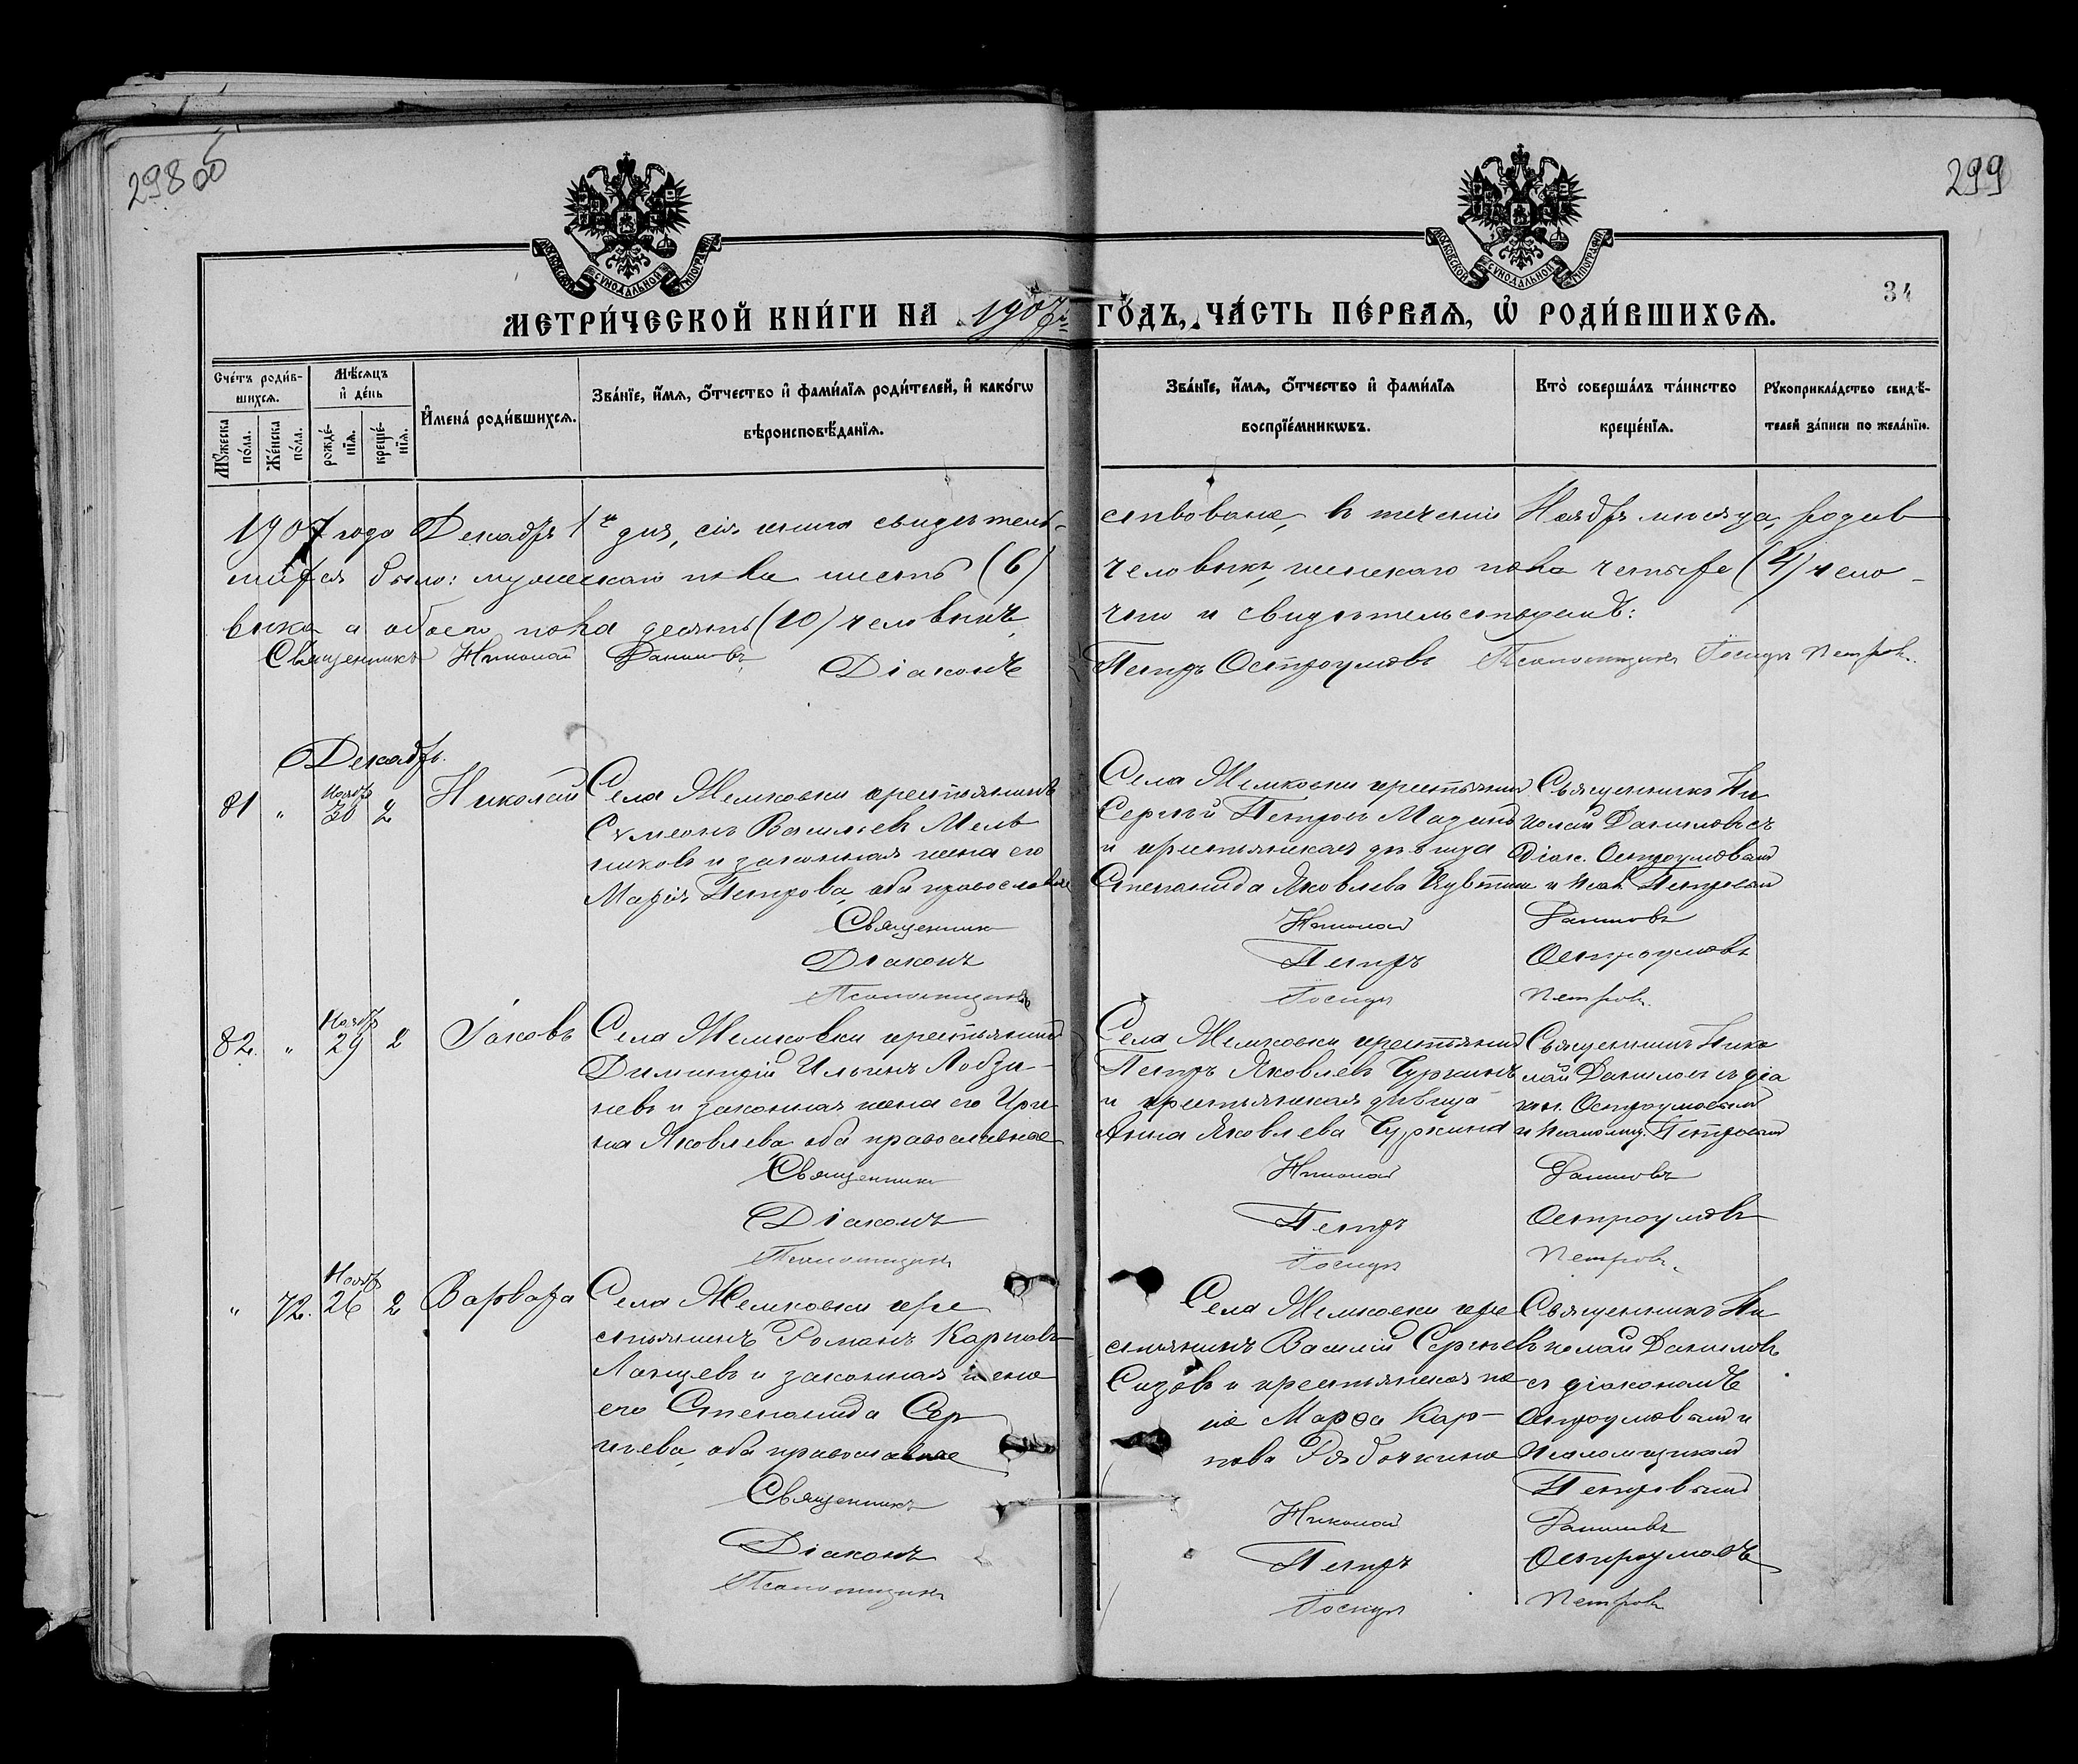 298 об
299
34
МОСКОВСКОЙ СѴНОДАЛЬНОЙ ТИПОГРАФІИ
МОСКОВСКОЙ СѴНОДАЛЬНОЙ ТИПОГРАФІИ
МЕТРИ́ЧЕСКОЙ КНИ́ГИ НА 1907й ГО́ДЪ, ЧА́СТЬ ПЕ́РВАѦ, Ѡ҆ РОДИ́ВШИХСѦ.
Сче́тъ роди́в-
шихсѧ.
Мꙋ́жеска по́ла.
Же́нска по́ла.
Мѣ́сѧцъ и҆ де́нь
рожде́-нїѧ.
креще́-нїѧ.
И҆мена́ роди́вшихсѧ.
Зва́нїе, и҆́мѧ, ѻ҆́тчество и҆ фами́лїѧ роди́телей, и҆ како́гѡ
вѣроисповѣ́данїѧ.
Зва́нїе, и҆́мѧ, ѻ҆́тчество и҆ фами́лїѧ
воспрїе́мникѡвъ.
Кто̀ соверша́лъ та́инство
креще́нїѧ.
Рꙋкоприкла́дство свидѣ́-
телей за́писи по жела́нїю.
1907 года Декабря 1го дня, сія книга свидетель-
ствована, въ теченіи Ноября месяца, родив
шихся было: мужескаго пола шесть (6)
человѣкъ, женскаго пола четыре (4) чело-
вѣка а обоего пола десять (10) человѣкъ,
что и свидѣтельствуемъ:
Священникъ Николай Данилов
Діаконъ
Петръ Остроумовъ Псаломщикъ Іосифъ Петровъ.
Декабрь.
81 " Ноября 30 2 Николай
Села Жемковки крестьянинъ
Сѵмеонъ Васильевъ Мель
никовъ и законная жена его
Марія Петрова, оба православные
Села Жемковки крестьянинъ
Сергѣй Петровъ Мазинъ
и крестьянская дѣвица
Степанида Яковлева
Священникъ Ни
колай Даниловъ съ
Діак. Остроумовымъ
и Псал. Петровымъ
Священникъ Николай Даниловъ
Діаконъ Петръ Остроумовъ
Псаломщикъ Іосифъ Петровъ.
82. " Ноября 29 2 Іаковъ
Села Жемковки крестьянинъ
Димитрій Ильинъ Лобзи-
невъ и законная жена его Ири
на Яковлева оба православные
Села Жемковки крестьянинъ
Петръ Яковлевъ Чуркинъ
и крестьянская дѣвица
Анна Яковлева Чуркина
Священникъ Нико
лай Даниловъ съ діа
кон. Остроумовымъ
и Псаломщ. Петровымъ
Священникъ Николай Даниловъ
Діаконъ Петръ Остроумовъ
Псаломщикъ Іосифъ Петровъ.
" 72. Ноября 26 2 Варвара
Села Жемковки кре
стьянинъ Романъ Карповъ
Ланцевъ и законная жена
его Степанида Сер
гѣева, оба православные
Села Жемковки кре
стьянинъ Василій Сергѣевъ
Сизовъ и крестьянская же
на Марѳа Кар-
пова Рябочкина
Священникъ Ни
колай Даниловъ
съ діакономъ
Остроумовымъ и
Псаломщикомъ
Петровымъ
Священникъ Николай Даниловъ
Діаконъ Петръ Остроумовъ
Псаломщикъ Іосифъ Петровъ